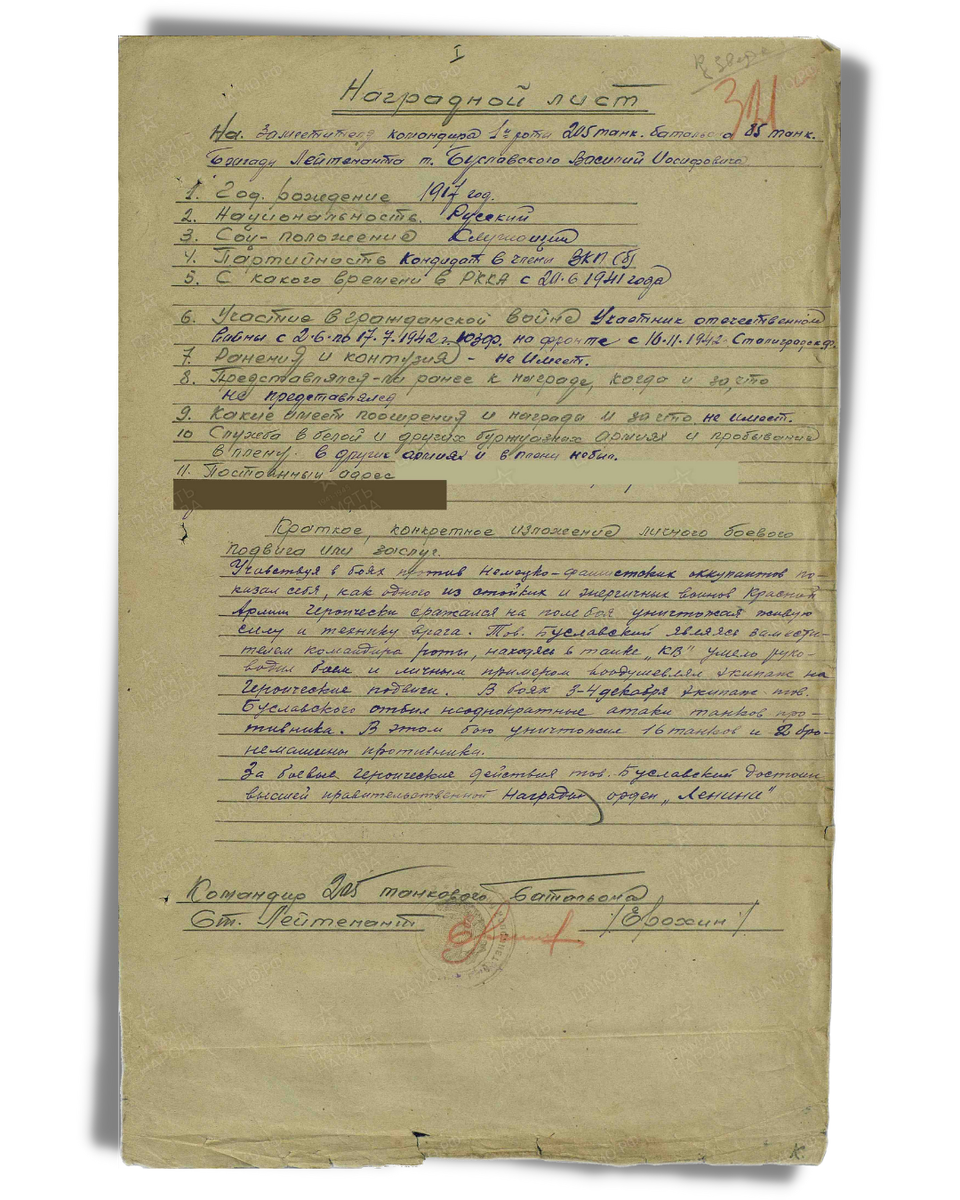 I
321
Наградной лист
На Заместителя командира 1й роты 205 танк. батальона 85 танк.
Бригады Лейтенанта т. Буславского Василий Иосифовича
1. Год рождение 1917 год.
2. Национальность. Русский
3. Соц-положение Служащий
4. Партийность Кандидат в члены ВКП(б)
5. С какого времени в РККА с 20.6 1941 года
6. Участие в гражданской войне Участник отечественной
войны с 2-6 по 17.7.1942 г. ЮЗФ. на фронте с 10.11.1942. Сталинградск.ф.
7. Ранения и контузия - не имеет.
8. Представлялся-ли ранее к награде, когда и за что
не представлялся
9. Какие имеет поощрения и награды и за что не имеет.
10 Служба в белой и других буржуазных армиях и пребывание
в плену. в других армиях и в плену не был.
11. Постоянный адрес
Краткое, конкретное изложение личного боевого
подвига или заслуг.
Участвуя в боях против немецко-фашистских оккупантов по-
казал себя, как одного из стойких и энергичных воинов Красной
Армии героически сражался на поле боя уничтожая живую
силу и технику врага. Тов. Буславский являясь замести-
телем командира роты, находясь в танке „КВ" умело руко-
водил боем и личным примером воодушевлял экипаж на
героические подвиги. В боях 3-4 декабря экипаж тов.
Буславского отбил неоднократные атаки танков про-
тивника. В этом бою уничтожил 16 танков и 2 бро-
немашины противника.
За боевые героические действия тов. Буславский достоин
высшей правительственной Награды орден „Ленина"
Командир 205 танкового батальона
Ст. Лейтенант /Ерохин/
К.